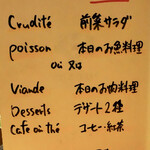 Crudité 前菜サラダ
poisson 本日のお魚料理
ou 又は
Viande 本日のお肉料理
Desserts デザート2種
Cafe ou thé コーヒー・紅茶